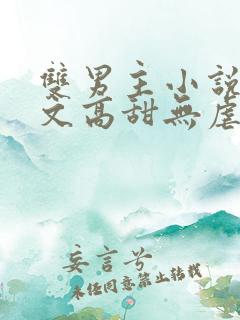 雙男主小說
文高甜無虐
妄言兮
未任同意禁止转载